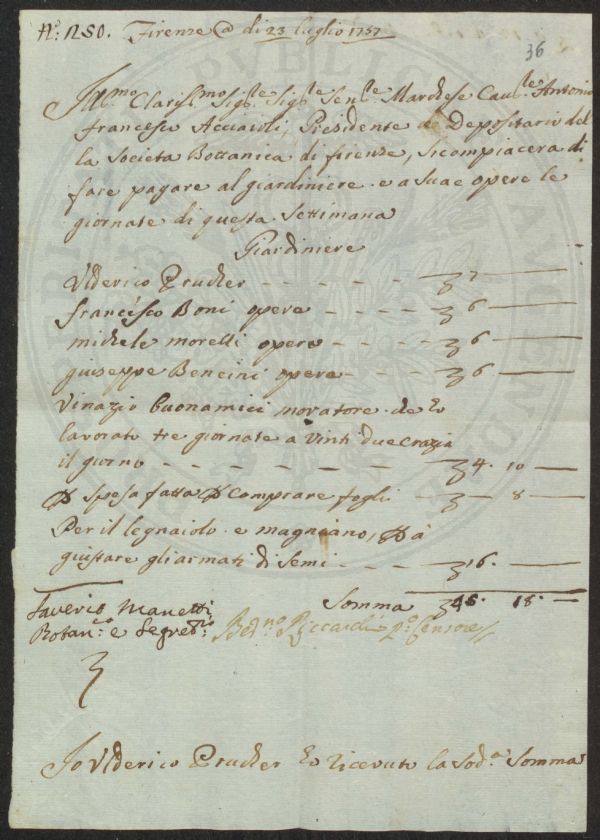 N.º 1250. Firenze @ di 23 luglio 1757
36
Ill.mo Clariss.mo Sig.re Sig.re Sen.re Marchese Cav.re Antonio
francesco Acciaioli, Presidente e Depositario del
la Societa Bottanica di firenze, si compiacera di
fare pagare al giardiniere e a sua e opere le
giornate di questa Settimana
Giardiniere
Vlderico Prucher - - - - 7 —
francesco Boni opera - - - - 6 —
michele morelli opera - - - - 6 —
giuseppe Bencini opera - - - - 6 —
Vinazio buonamici moratore che to
lavorato tre giornate a vinti due crazia
il giorno - - - - - - 4. 10 —
P sposa fatta P comprare fogli - - — 8 —
Per il legniaiolo e magniano, P a
giustare gli armati di Semi - - - 16. —
Somma 46. 18. —
Saverio Manetti
Botan.co e Segret.rio Bern.no Riccardi P.o Censore
Io Vlderico Prucher ho ricevuto la Sod.a Somma
PUBLICA